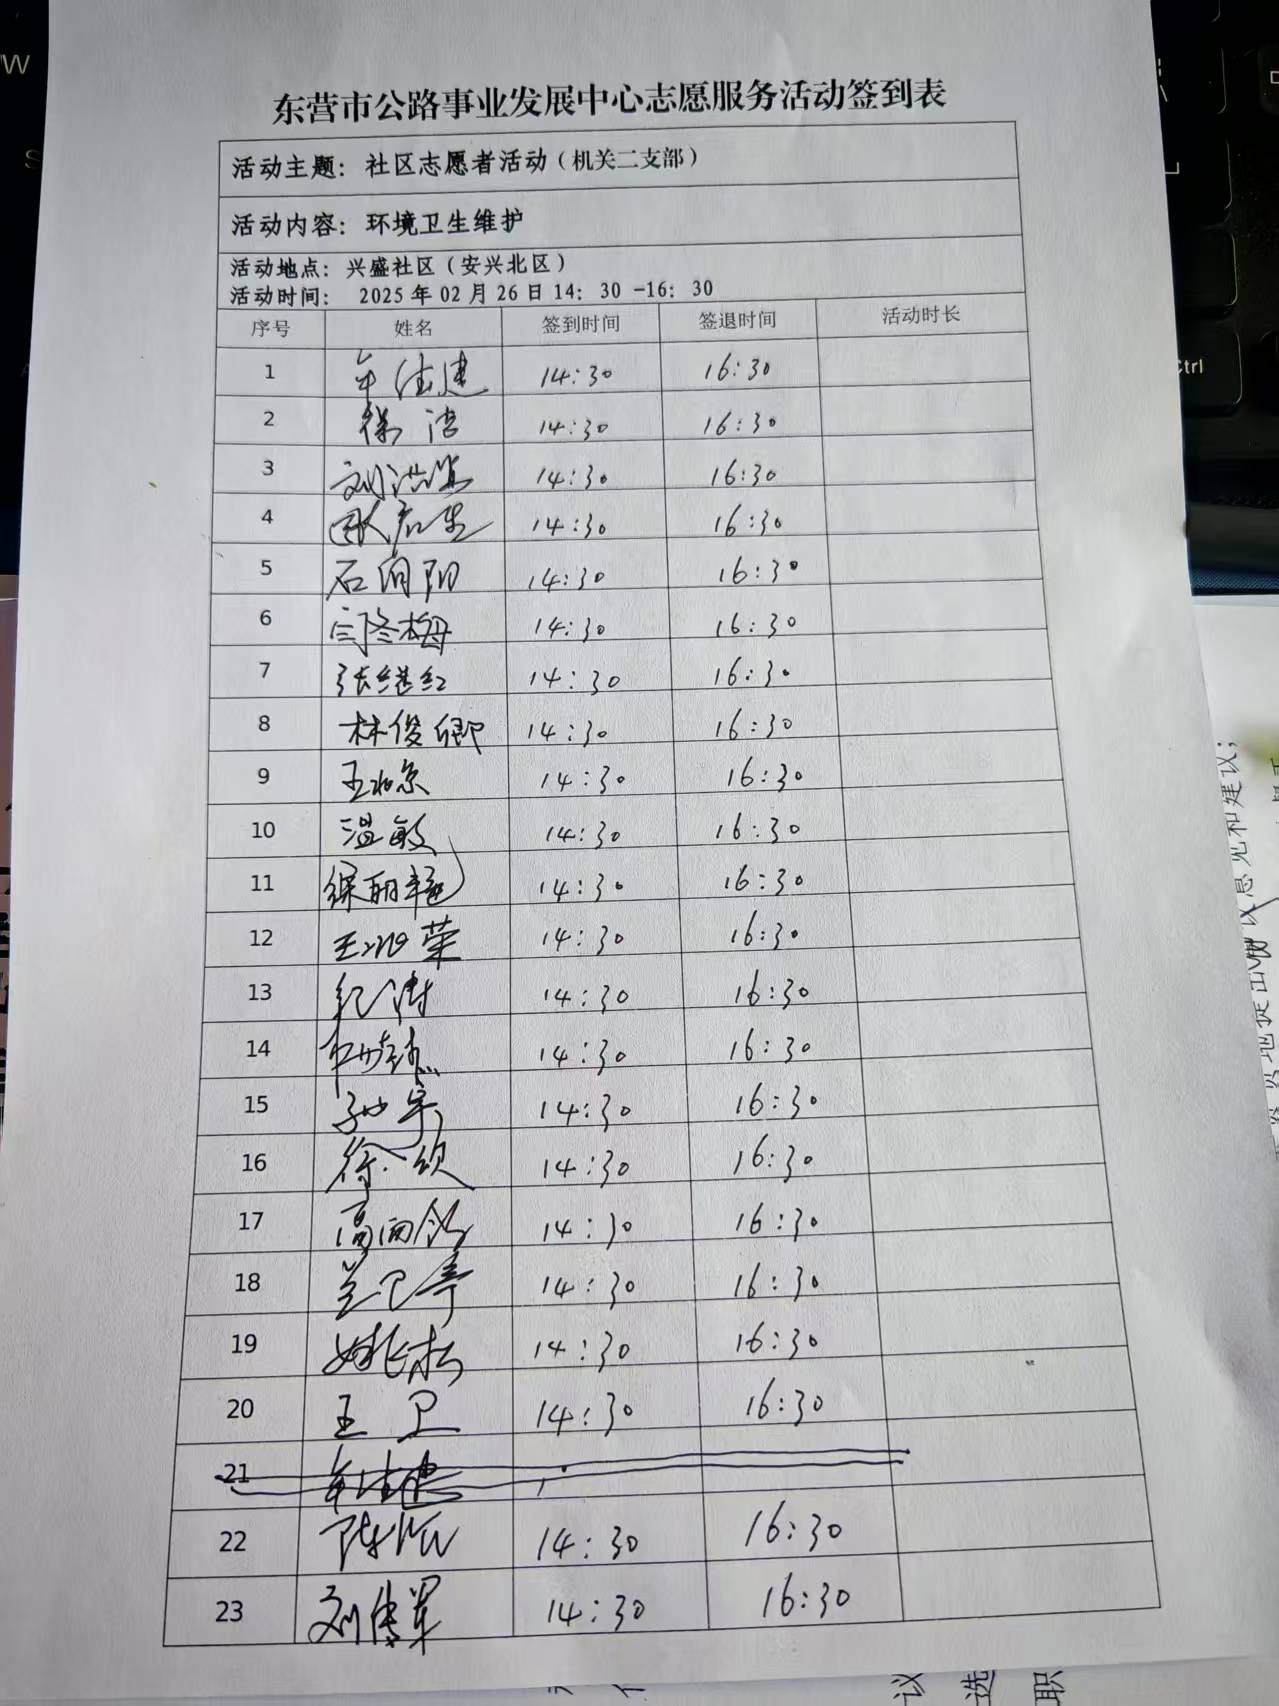 东营市公路事业发展中心志愿服务活动签到表
活动主题：社区志愿者活动（机关二支部）
活动内容：环境卫生维护
活动地点：兴盛社区（安兴北区）
活动时间： 2025年02月26日14：30-16：30
序号 姓名 签到时间 签退时间 活动时长
1 14:30 16:30
2 徐洁 14:30 16:30
3 刘洪 14:30 16:30
4 14:30 16:30
5 石向阳 14:30 16:30
6 闫冬梅 14:30 16:30
7 张继红 14:30 16:30
8 林俊卿 14:30 16:30
9 王北京 14:30 16:30
10 温敏 14:30 16:30
11 徐丽艳 14:30 16:30
12 王 荣 14:30 16:30
13 纪涛 14:30 16:30
14 14:30 16:30
15 孙宇 14:30 16:30
16 徐 14:30 16:30
17 高雨 14:30 16:30
18 兰卫亭 14:30 16:30
19 姚长松 14:30 16:30
20 王卫 14:30 16:30
21
22 14:30 16:30
23 刘传军 14:30 16:30
Ctrl
意见和建议；
议
选
职